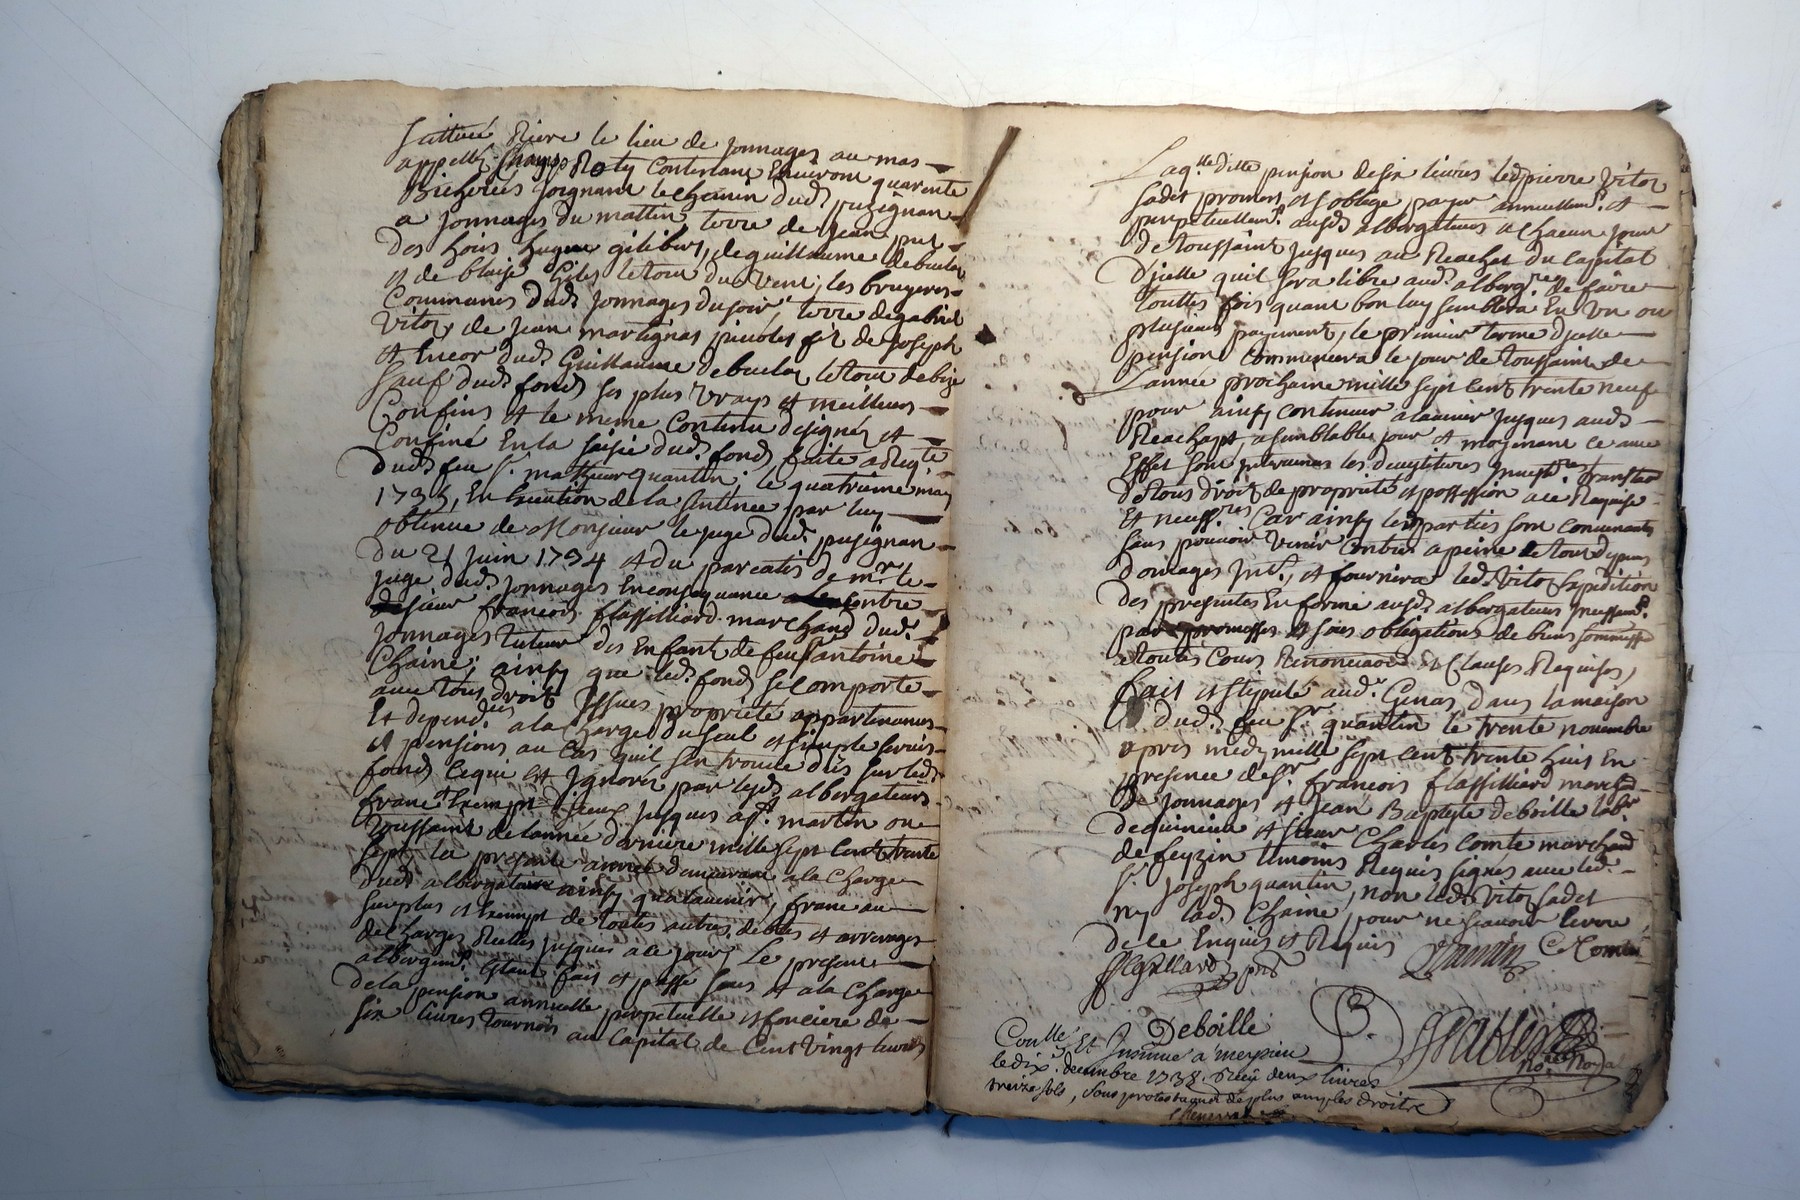 scittué Riere le lieu de Jonnages au mas
appellé Champ Roty Contenant Environt quarente
Bicherées Joignant le Chemin dud. pusignan
a Jonnages du mattin, terre de Jean
des hoirs hugue gilibert, de guillaume debuclas
et de blaise Giles letout du Vent, les bruyeres
Communes dud. Jonnages du soir, terre de gabriel
Vitoz, de Jean martignas fils de Joseph
et Encor dud. Guillaume debuclas letout de bize
Sauf dud. fond ses plus Vrays et meilleurs
Confins et le meme Contenu designé et
Confiné En la saisie dud. fond faite a Reqte
dud. feu Sr. mathieu quantin, le quatrieme may
1735, En Execution de la sentence par luy
obtenue de Monsieur le Juge dud. pusignan
du 21 Juin 1734 et du pareatis de mr. le
Juge dud. Jonnages En consequance Contre
sieur francois flassilliard marchand dud.
Jonnages tuteur des Enfants de feu antoine
Chaine, ainsy que led. fond se Comporte
avec tous droits Issues propriete appartenances
Et depend.ces a la Charge du seul et simple servis
et pensions au Cas quil s'en trouve dus sur led.
fond, ce qui est Ignoré par lesd. albergateurs
franc d'Iceux Jusques a St. martin ou
Toussaint de lannée derniere mille sept Cent trente
sept, la presente année demeurant a la Charge
dud. albergataire ainsy qu'a lavenir, franc au
surplus et Exempt de toutes autres debtes et arrerages
de Charges Reelles Jusques a ce Jour, Le present
albergemt. Etant fait et passé sous et a la Charge
de la pension annuelle perpetuelle et fonciere de
six livres tournois au Capital de Cent vingt livres
Laq.lle ditte pension de six livres led. pierre Vitoz
Cadet promet et s'oblige payer annuellemt. et
perpetuellemt. ausd. albergateurs a Chacun Jour
de toussaint Jusques au Reachet du Capital
D'Icelle quil sera libre aud. alberg.re de faire
touttes fois quant bon luy semblera En Un ou
plusieurs payements, le premier terme d'Icelle
pension Commencera le Jour de toussaint de
Lannée prochaine mille sept Cent trente neuf
pour ainsy Continuer a lavenir Jusques aud.
Reachapt, a semblable Jour et moyenant ce
Effet sont
de tous droits de propriété et possession a ce Requise
Et necess.res Car ainsy led. parties sont Convenants
sans pouvoir Venir Contre a peine de tous depens
domages Int., et fournira led. Vitoz Expedition
des presentes En forme ausd. albergateurs
par promesses et sous obligations de biens soummission
a toutes Cours Renonciaons et Clauses Requises,
fait et stipulé aud. Genas, dans la maison
dud. feu Sr. quantin le trente novembre
apres midy mille sept Cent trente huit En
presence de Sr. francois flassilliard march.d
de Jonnages et Jean Baptiste deboille labr.
de quincieu et sieur Charles Comte marchand
de feyzin temoins Requis signés avec led.
Sr. Joseph quantin, non led. Vitoz Cadet
ny lad. Chaine, pour ne scavoir Ecrire
de ce Enquis et Requis
Quantin C Comte
Deboille
No.re Royal
Con.llé Et Insinué a meyzieu
le dix decembre 1738. Reçu deux livres
treize sols, sans protestaons de plus amples droits